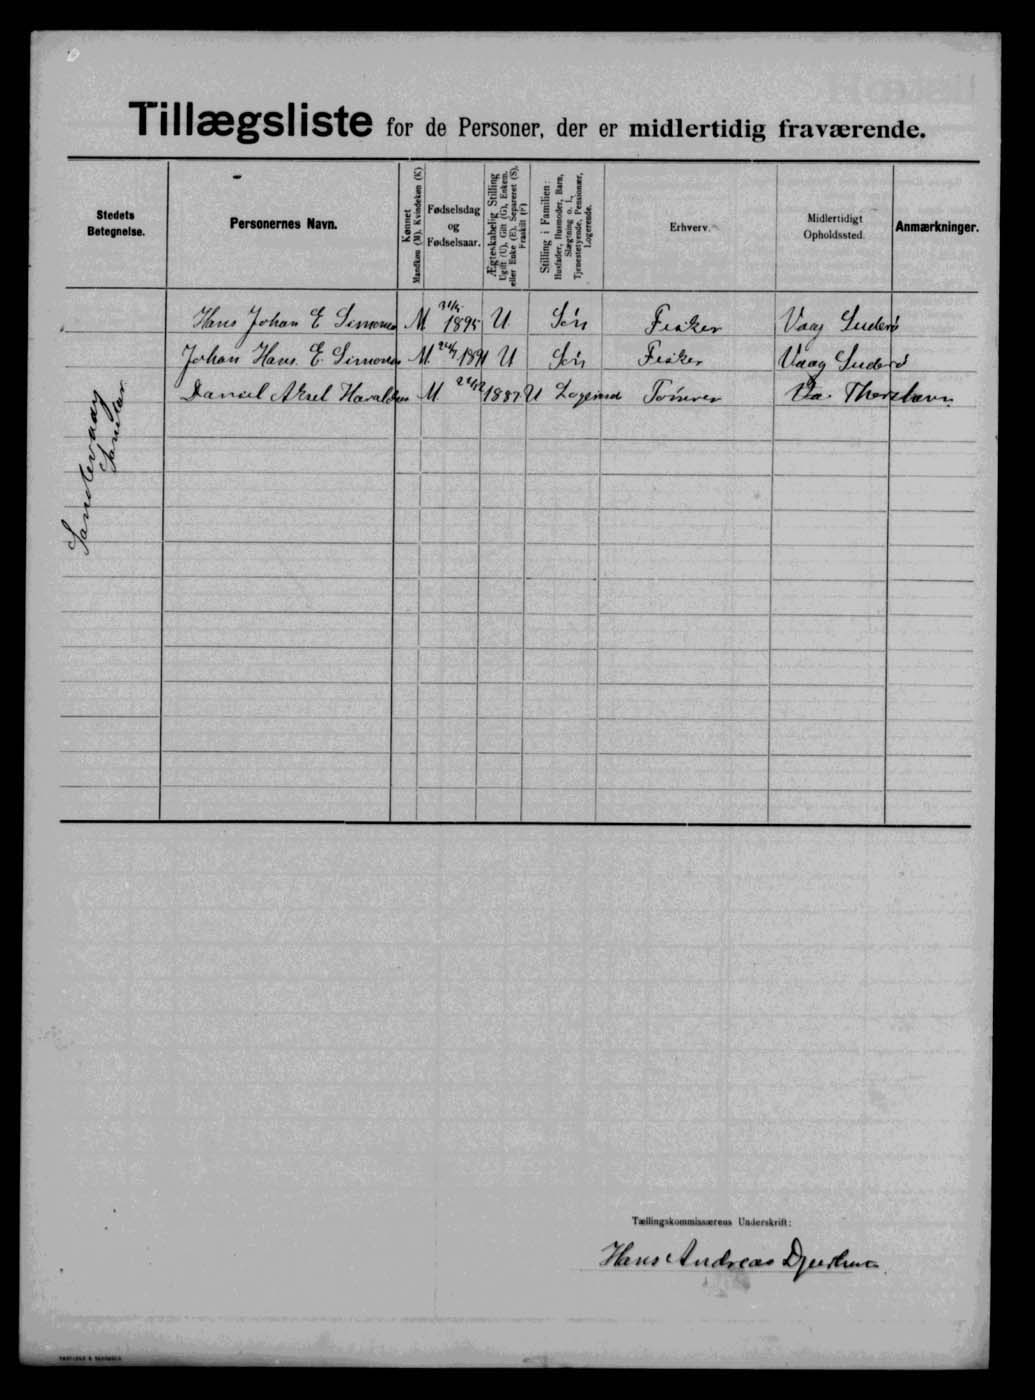 Tillægsliste for de Personer, der er midlertidig fraværende.
Stedets Betegnelse.
Personernes Navn.
Kønnet
Mandkøn (M), Kvindekøn (K)
Fødselsdag
og
Fødselsaar.
Ægteskabelig Stilling
Ugift (U), Gift (G), Enkem.
eller Enke (E), Separeret (S),
Fraskilt (F)
Stilling i Familien:
Husfader, Husmoder, Barn,
Slægtning o. l.,
Tjenestetyende, Pensionær,
Logerende.
Erhverv.
Midlertidigt
Opholdssted.
Anmærkninger.
Hans Johan E Simonsen M 1895 U Søn Fisker Vaag Suderø
Johan Hans E Simonsen M 1891 U Søn Fisker Vaag Suderø
Daniel Aksel Haraldsen M 1887 U Logerend Tømrer Thorshavn
Sandevaag
Tællingskommissærens Underskrift:
Hans Andreas Djurhuus